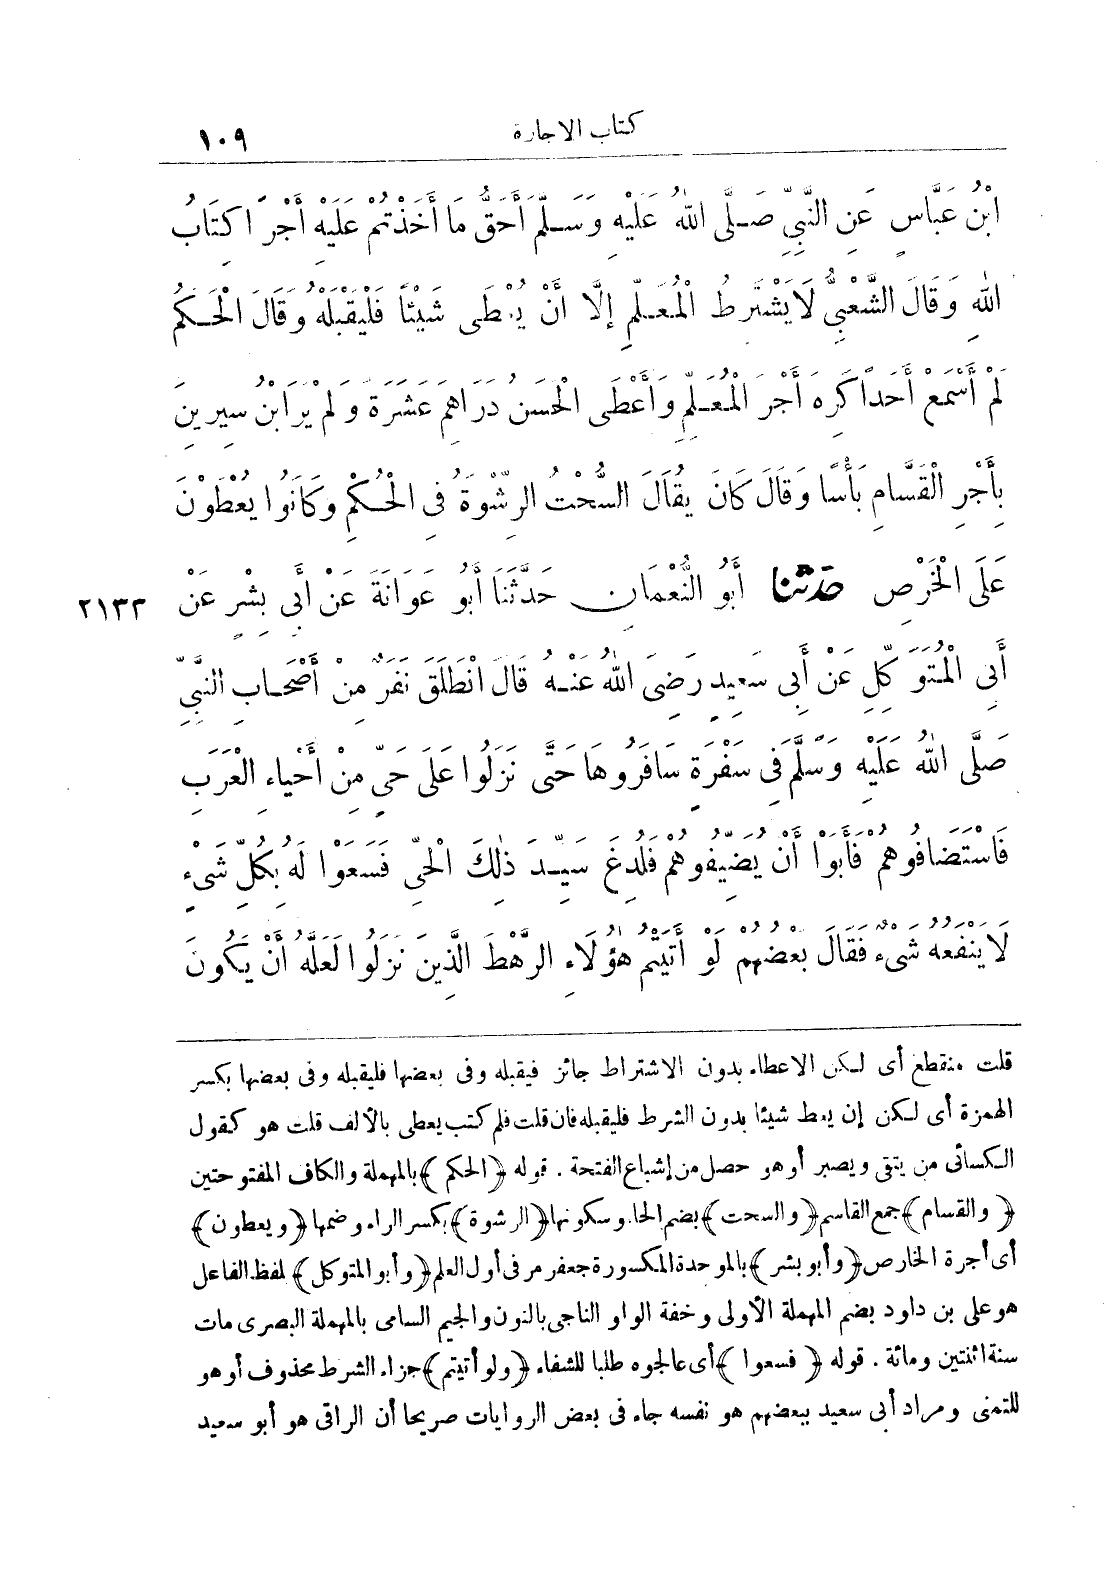 كتاب الاجارة ١٠٩
ابْنُ عَبَّاسٍ عَنِ النَّبِيِّ صَلَّى اللهُ عَلَيْهِ وَسَلَّمَ أَحَقُّ مَا أَخَذْتُمْ عَلَيْهِ أَجْرًا كِتَابُ
اللهِ وَقَالَ الشَّعْبِيُّ لَا يَشْتَرِطُ الْمُعَلِّمُ إِلَّا أَنْ يُعْطَى شَيْئًا فَلْيَقْبَلْهُ وَقَالَ الْحَكَمُ
لَمْ أَسْمَعْ أَحَدًا كَرِهَ أَجْرَ الْمُعَلِّمِ وَأَعْطَى الْحَسَنُ دَرَاهِمَ عَشَرَةً وَلَمْ يَرَ ابْنُ سِيرِينَ
بِأَجْرِ الْقَسَّامِ بَأْسًا وَقَالَ كَانَ يُقَالُ السُّحْتُ الرِّشْوَةُ فِى الْحُكْمِ وَكَانُوا يُعْطَوْنَ
عَلَى الْخَرْصِ حَدَّثَنَا أَبُو النُّعْمَانِ حَدَّثَنَا أَبُو عَوَانَةَ عَنْ أَبِى بِشْرٍ عَنْ ٢١٣٣
أَبِى الْمُتَوَكِّلِ عَنْ أَبِى سَعِيدٍ رَضِىَ اللهُ عَنْهُ قَالَ انْطَلَقَ نَفَرٌ مِنْ أَصْحَابِ النَّبِيِّ
صَلَّى اللهُ عَلَيْهِ وَسَلَّمَ فِى سَفْرَةٍ سَافَرُوهَا حَتَّى نَزَلُوا عَلَى حَىٍّ مِنْ أَحْيَاءِ الْعَرَبِ
فَاسْتَضَافُوهُمْ فَأَبَوْا أَنْ يُضَيِّفُوهُمْ فَلُدِغَ سَيِّدُ ذٰلِكَ الْحَىِّ فَسَعَوْا لَهُ بِكُلِّ شَىْءٍ
لَا يَنْفَعُهُ شَىْءٌ فَقَالَ بَعْضُهُمْ لَوْ أَتَيْتُمْ هٰؤُلَاءِ الرَّهْطَ الَّذِينَ نَزَلُوا لَعَلَّهُ أَنْ يَكُونَ
قلت منقطع أى لـكن الاعطاء بدون الاشتراط جائز فيقبله وفى بعضها فليقبله وفى بعضها بكسر
الهمزة أى لـكن إن يعط شيئا بدون الشرط فليقبله فان قلت فلم كتب يعطى بالألف قلت هو كقول
الكسائى من يتقى ويصبر أو هو حصل من إشباع الفتحة . قوله ﴿ الحكم ﴾ بالمهملة والكاف المفتوحتين
﴿ والقسام ﴾ جمع القاسم ﴿ والسحت ﴾ بضم الحاء وسكونها ﴿ الرشوة ﴾ بكسر الراء وضمها ﴿ ويعطون ﴾
أى أجرة الخارص ﴿ وأبو بشر ﴾ بالموحدة المكسورة جعفر مر فى أول العلم ﴿ وأبو المتوكل ﴾ لفظ الفاعل
هو على بن داود بضم المهملة الأولى وخفة الواو الناجى بالنون والجيم السامى بالمهملة البصرى مات
سنة اثنتين ومائة . قوله ﴿ فسعوا ﴾ أى عالجوه طلبا للشفاء ﴿ ولو أتيتم ﴾ جزاء الشرط محذوف أو هو
للتمنى ومراد أبى سعيد ببعضهم هو نفسه جاء فى بعض الروايات صريحا أن الراقى هو أبو سعيد